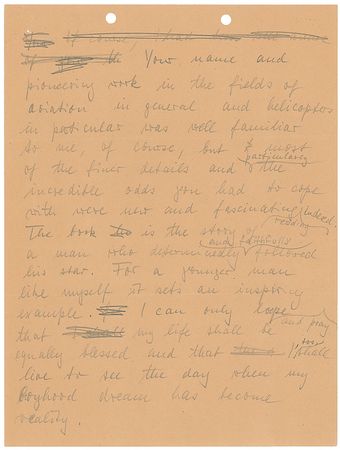 of course, I had
of Your, name and
pioneering work in the fields of
aviation in general and helicopters
in particular was well familiar
to me, of course, but & most
of the finer details and particularly the
incredible odds you had to cope
with were new and fascinating indeed.
The book is the story of
a man who determinedly and faithfully followed
his star. For a younger man
like myself it sets an inspiring
example. I can only hope and pray
that my life shall be
equally blessed and that I too shall
live to see the day when my
boyhood dream has become
reality.